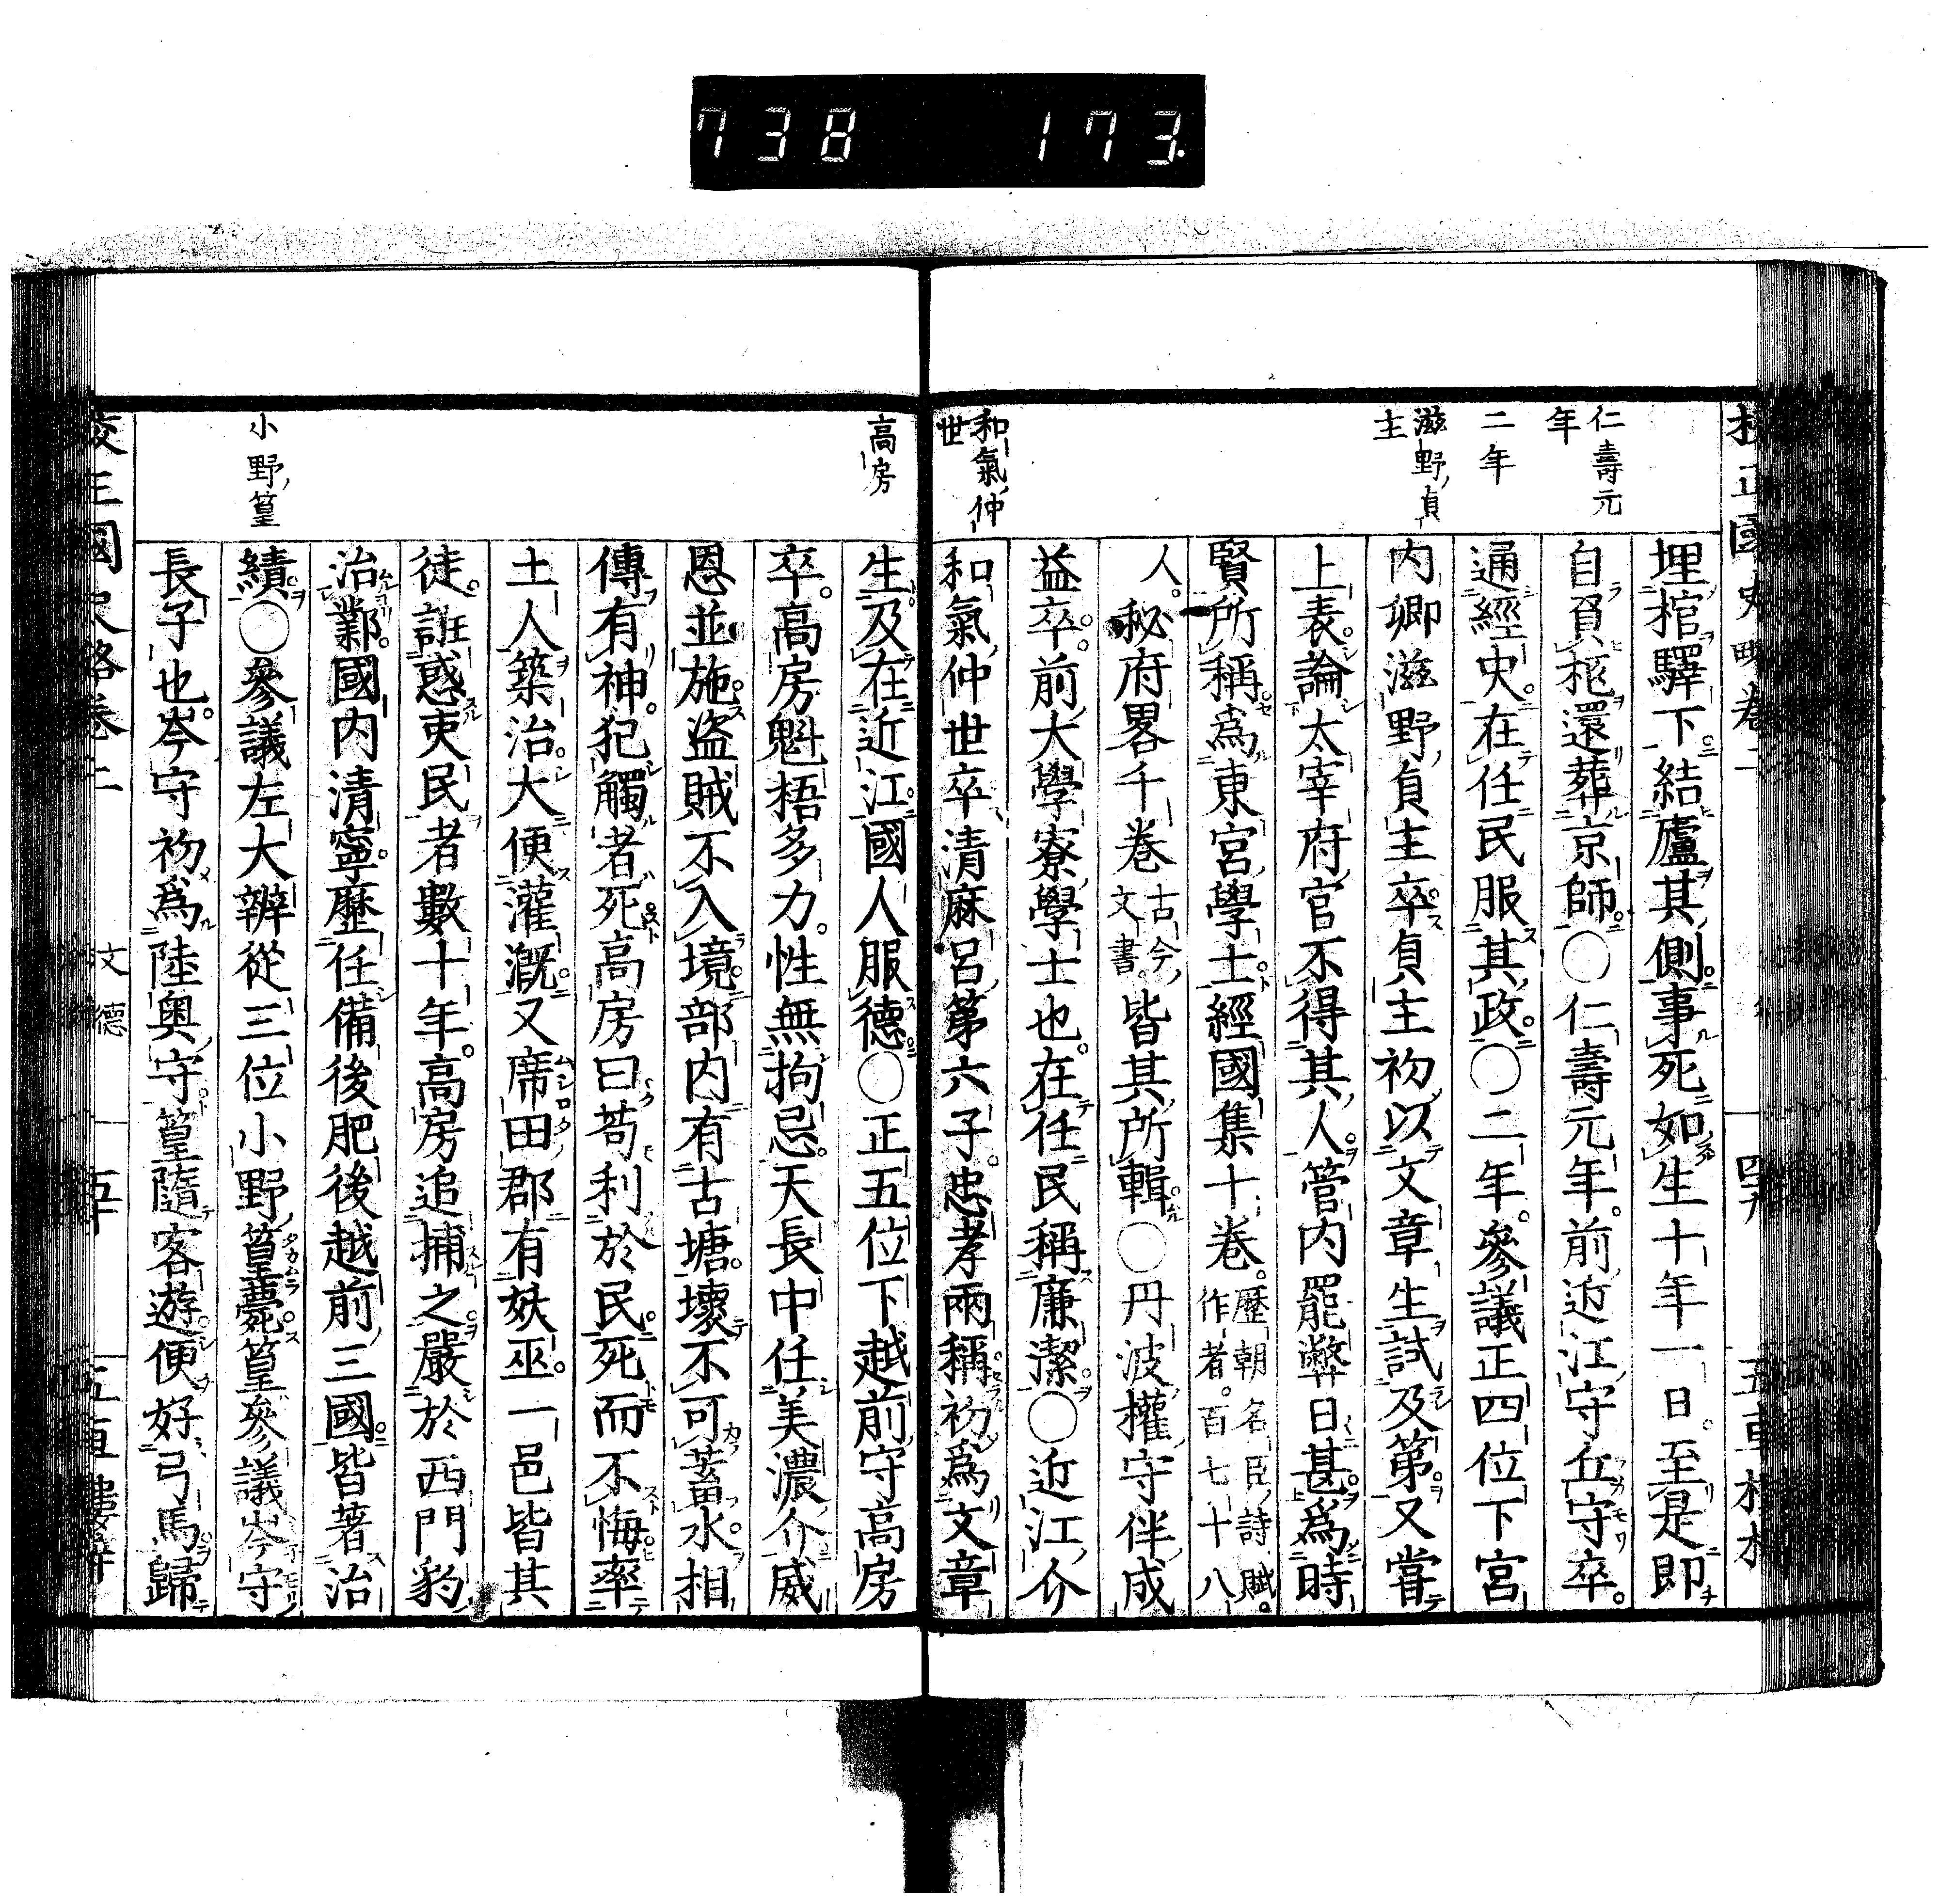 738 173.
仁壽元年
二年
滋野貞主
和氣仲世
埋棺驛下結廬其側事死如生十年一日至是即
自負柩還葬京師○仁壽元年前近江守丘守卒
通經史在任民服其政○二年參議正四位下宮
内卿滋野貞主卒貞主初以文章生試及第又嘗
上表論太宰府官不得其人管内罷弊日甚爲時
賢所稱爲東宮學士經國集十卷歷朝名臣詩賦作者百七十八
人秘府畧千卷古今文書皆其所輯○丹波權守伴成
益卒前大學寮學士也在任民稱廉潔○近江介
和氣仲世卒清麻呂第六子忠孝兩稱初爲文章
高房
小野篁
生及在近江國人服德○正五位下越前守高房
卒高房魁梧多力性無拘忌天長中任美濃介威
恩並施盜賊不入境部内有古塘壞不可蓄水相
傳有神犯觸者死高房曰苟利於民死而不悔率
土人築治大便灌漑又席田郡有妖巫一邑皆其
徒誑惑吏民者數十年高房追捕之嚴於西門豹
治鄴國内清寧歷任備後肥後越前三國皆著治
績○參議左大辨從三位小野篁薨篁參議岑守
長子也岑守初爲陸奧守篁隨客遊便好弓馬歸
文德